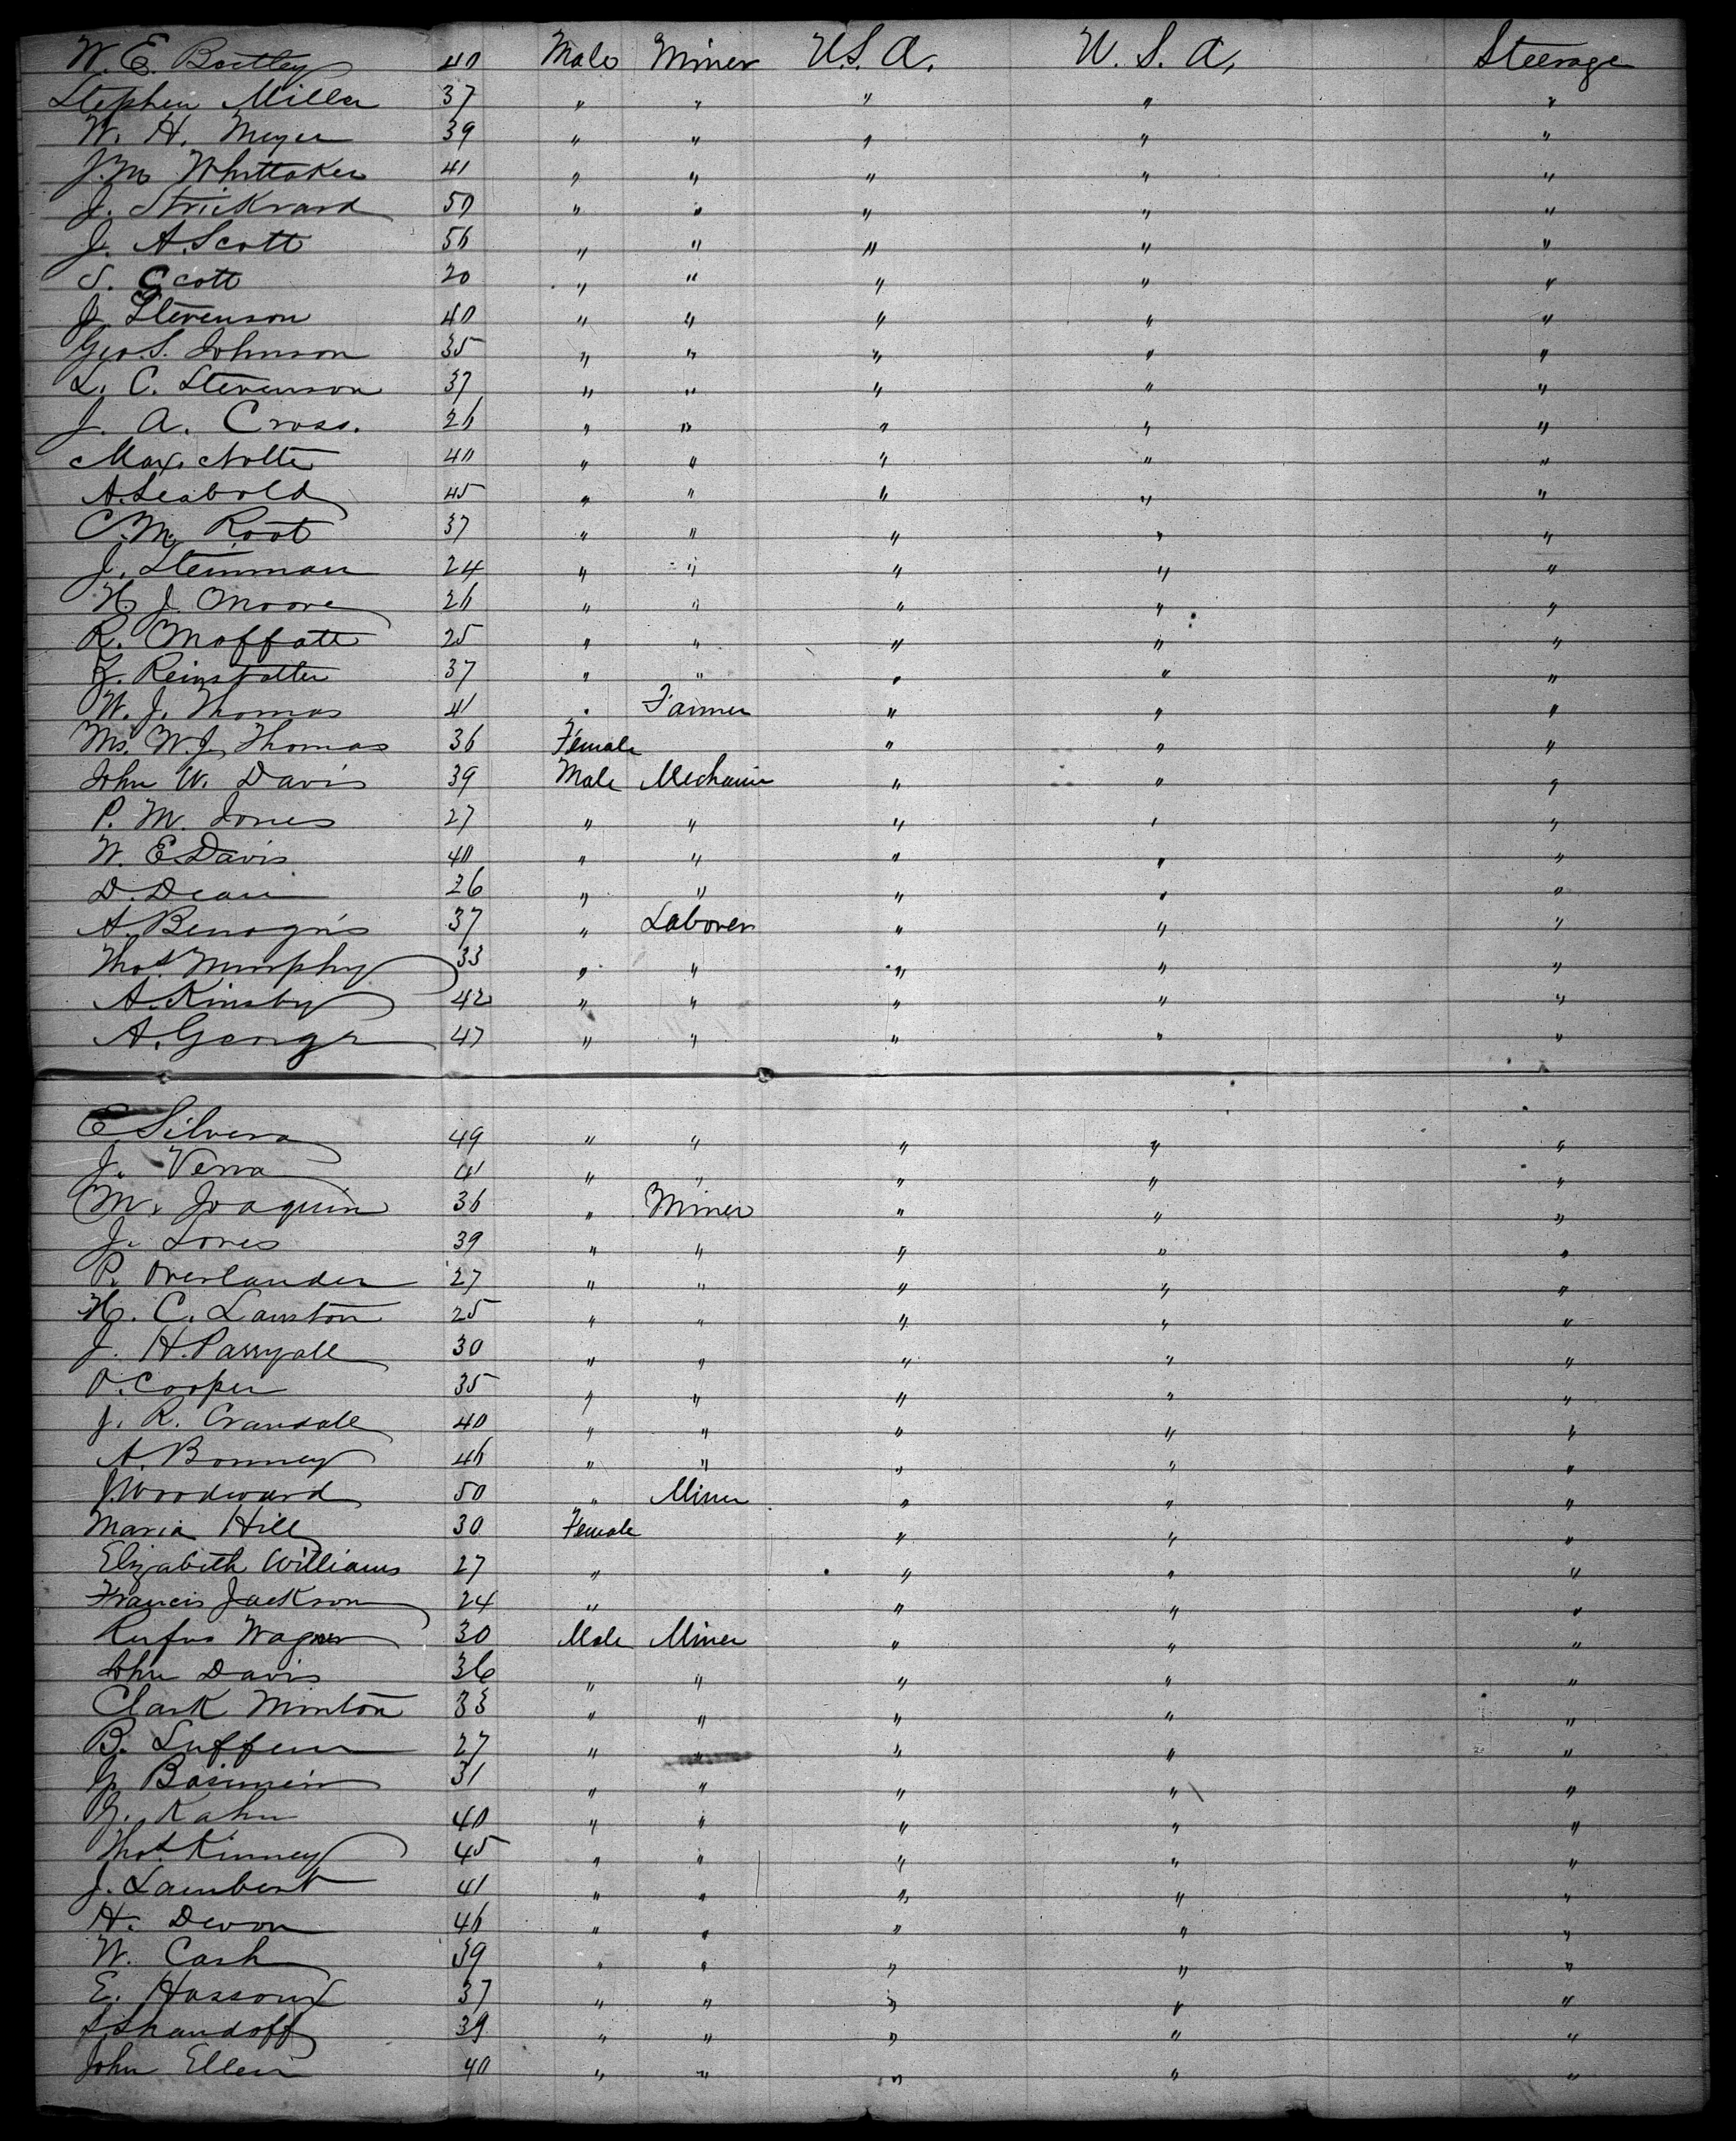 W. E. Bartley 40 Male Miner U.S.A. U.S.A. Steerage
Stephen Miller 37 " " " " "
W. H. Meyer 39 " " " " "
J. M. Whittaker 41 " " " " "
J. 50 " " " " "
J. A. Scott 56 " " " " "
S. Scott 20 " " " " "
J. Stevenson 40 " " " " "
Geo. S. Johnson 35 " " " " "
L. C. Stevenson 37 " " " " "
J. A. Cross. 26 " " " " "
Max Nolte 40 " " " " "
A. Seabold 45 " " " " "
C. M. Root 37 " " " " "
J. Steinman 24 " " " " "
H. J. Moore 26 " " " " "
R. Moffatt 25 " " " " "
Reinstatler 37 " " " " "
W. J. Thomas 41 " Farmer " " "
Mrs. W. J. Thomas 36 Female " " "
John W. Davis 39 Male Mechanic " " "
P. M. Jones 27 " " " " "
W. E. Davis 40 " " " " "
D. Dean 26 " " " " "
A. 37 " Laborer " " "
Thos. Murphy 33 " " " " "
A. Kinsby 42 " " " " "
A. George 47 " " " " "
E Silvera 49 " " " " "
J. 41 " " " " "
M. Joaquin 36 " Miner " " "
J. 39 " " " " "
P. Overlander 27 " " " " "
H. C. Lawston 25 " " " " "
J. H. 30 " " " " "
O. Cooper 35 " " " " "
J. R. Crandall 40 " " " " "
A. Bonney 46 " " " " "
J. Woodward 50 " Miner " " "
Maria Hill 30 Female " " "
Elizabeth Williams 27 " " " "
Francis Jackson 24 " " " "
Rufus Wagner 30 Male Miner " " "
John Davis 36 " " " " "
Clark Minton 33 " " " " "
B. 27 " " " " "
31 " " " " "
G. Kahn 40 " " " " "
Thos. Kinney 45 " " " " "
J. Lambert 41 " " " " "
H. Devon 46 " " " " "
W. Cash 39 " " " " "
E. 37 " " " " "
S. Shandoff 39 " " " " "
John Ellen 40 " " " " "